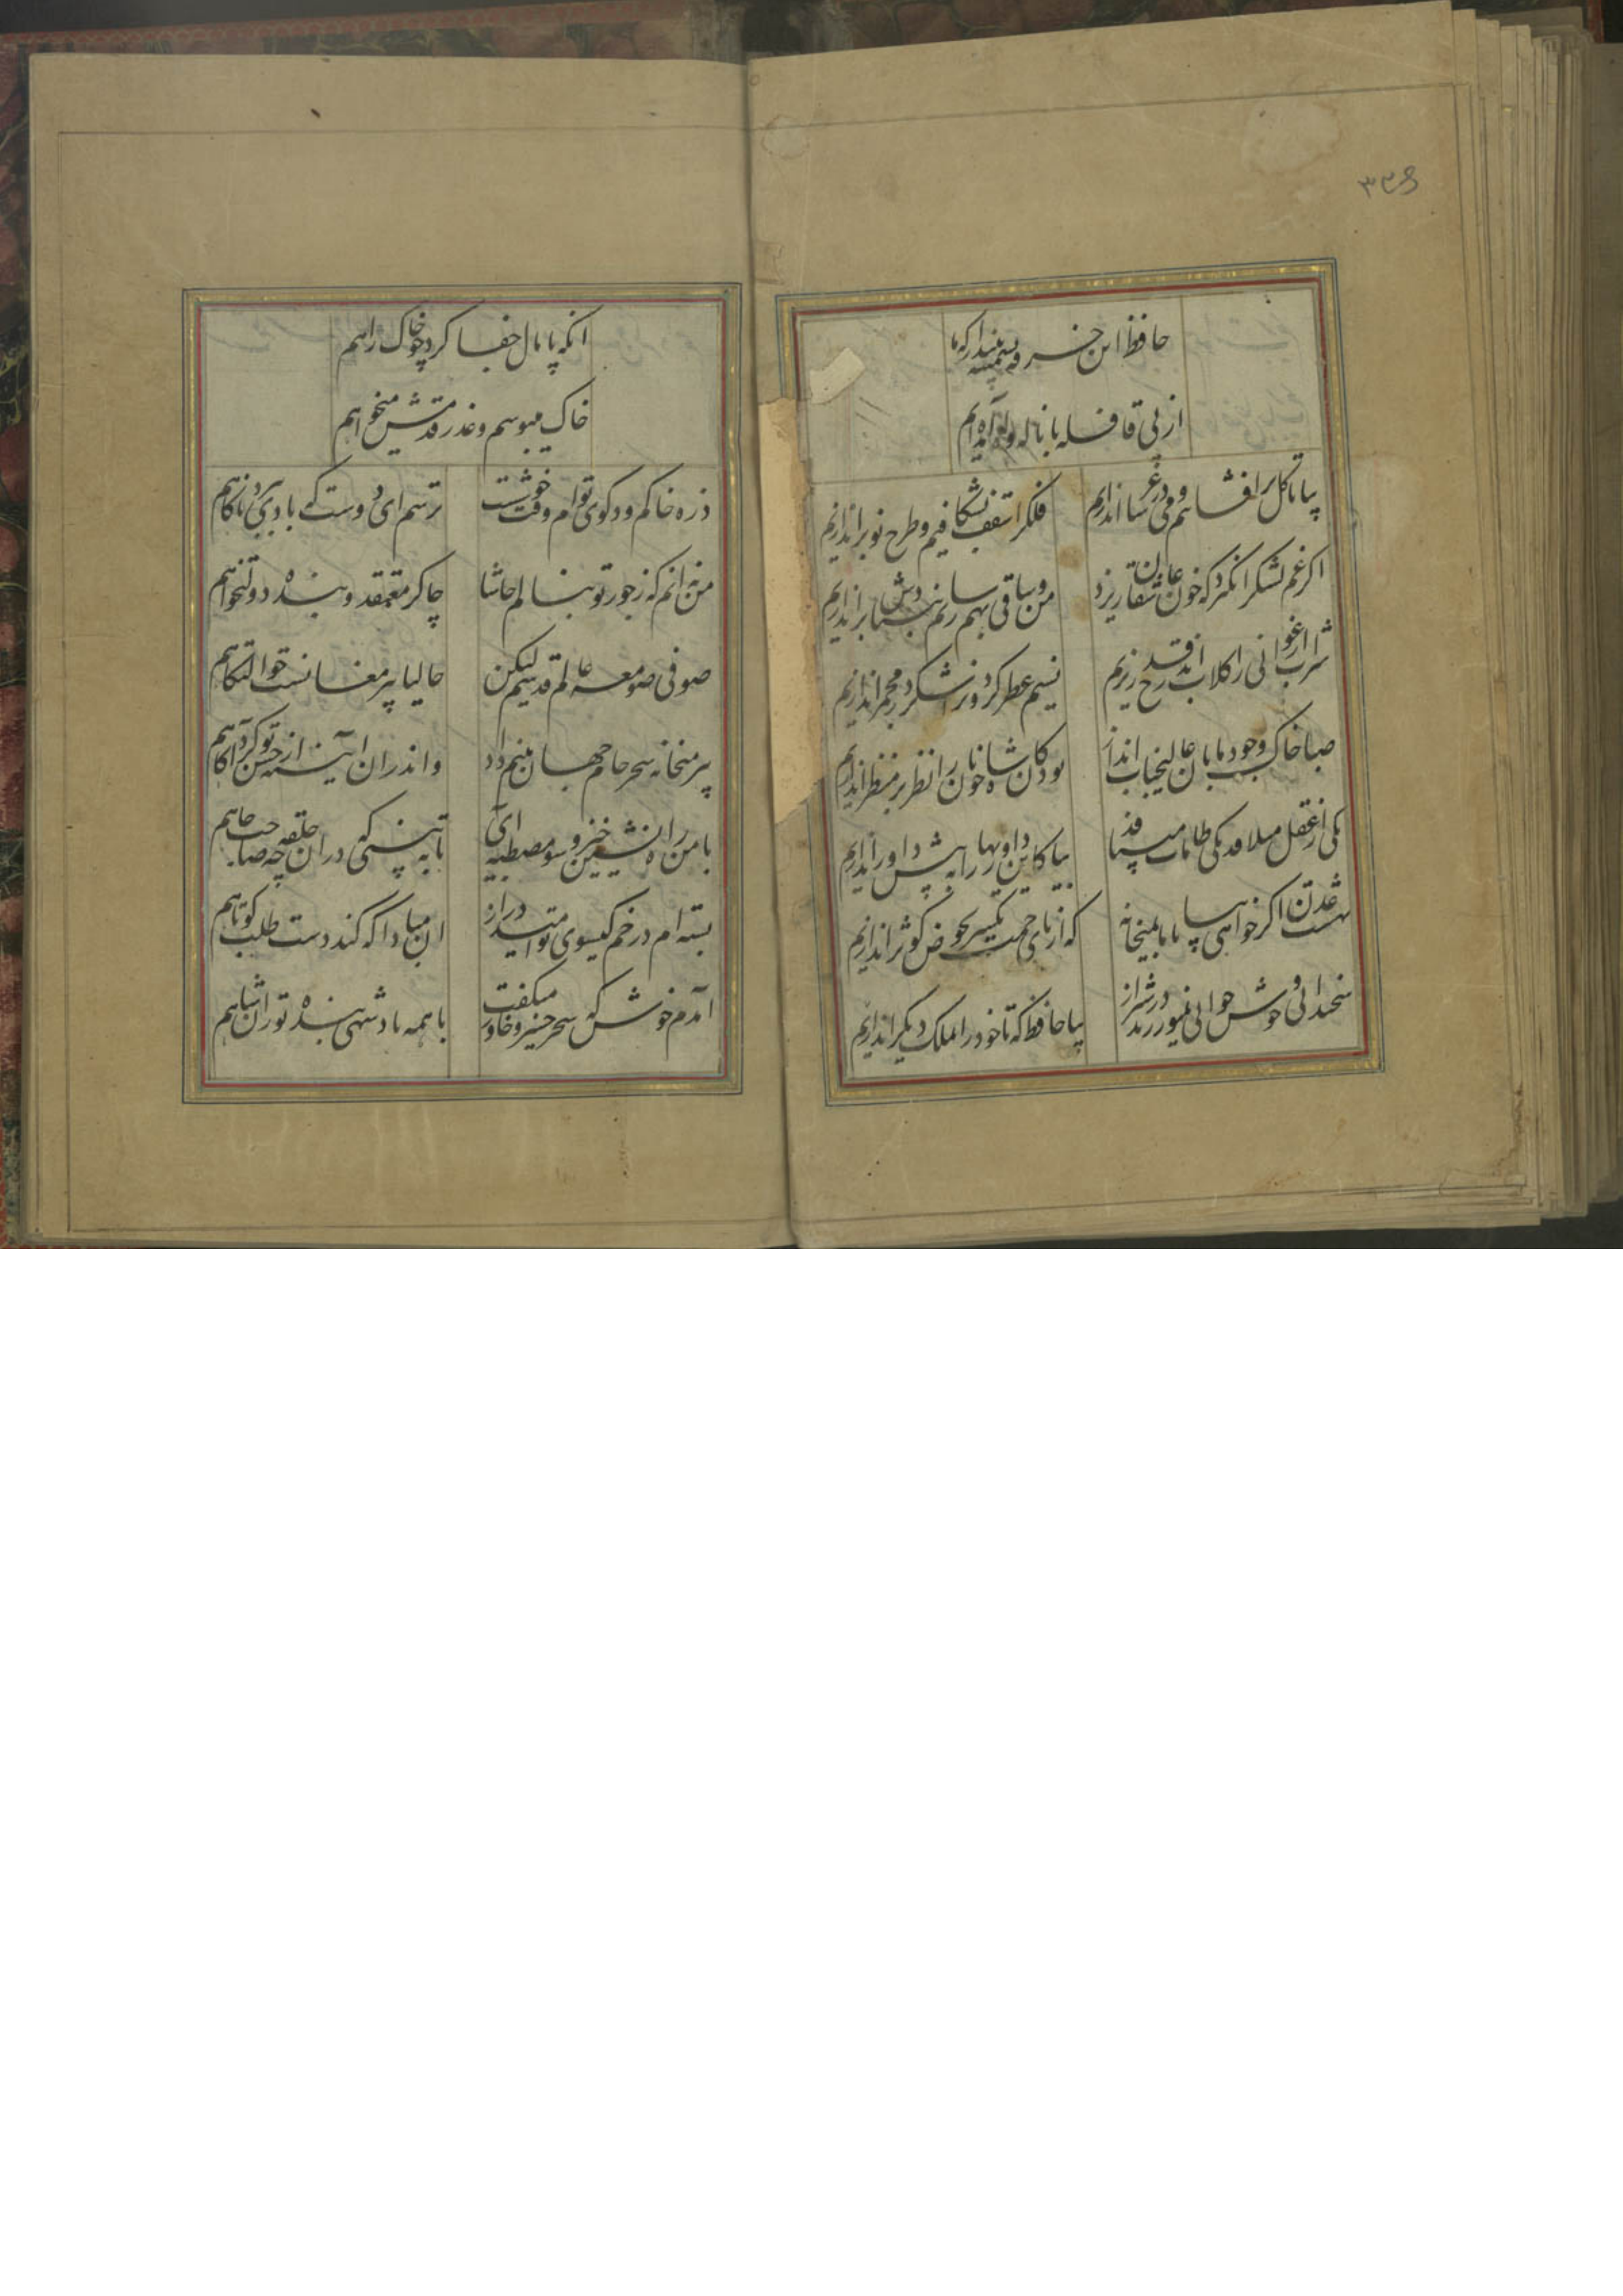 ۳۳۶
حافظ این خرقه پشمینه بینداز که ما
از پی قافله با ناله و آه آمده ایم
بیا تا گل برافشانیم و می در ساغر اندازیم
فلک را سقف بشکافیم و طرح نو براندازیم
اگر غم لشکر انگیزد که خون عاشقان ریزد
من و ساقی بهم سازیم بنیادش براندازیم
شراب ارغوانی را گلاب اندر قدح ریزیم
نسیم عطر گردون را شکر در مجمر اندازیم
صبا خاک وجود ما بان عالیجناب انداز
بود کان شاه خوبان را نظر بر منظر اندازیم
یکی از عقل میلافد یکی طامات میبافد
بیا کاین داوریها را به پیش داور اندازیم
بهشت عدن اگر خواهی بیا با ما بمیخانه
که از پای خمت یکسر بحوض کوثر اندازیم
سخندانی و خوش خوانی نمیورزند در شیراز
بیا حافظ که تا خود را بملک دیگر اندازیم
انکه پامال جفا کرد چو خاک راهم
خاک میبوسم و عذر قدمش میخواهم
ذره خاکم و در کوی توام وقت خوشست
ترسم ای دوست که بادی ببرد ناگاهم
من نه انم که ز جور تو بنالم حاشا
چاکر معتقد و بنده دولتخواهم
صوفی صومعه عالم قدسیم لیکن
حالیا پیر مغانست حوالتگاهم
پیر میخانه سحر جام جهان بینم داد
و اندران آینه از حسن تو کرد آگاهم
با من راه نشین خیز و سوی مصطبه آی
تا به بینی که دران حلقه چه صاحب جاهم
بسته ام در خم گیسوی تو امید دراز
ان مبادا که کند دست طلب کوتاهم
آمدم خوش که سحر خسرو خاور میگفت
با همه پادشهی بنده تورانشاهم